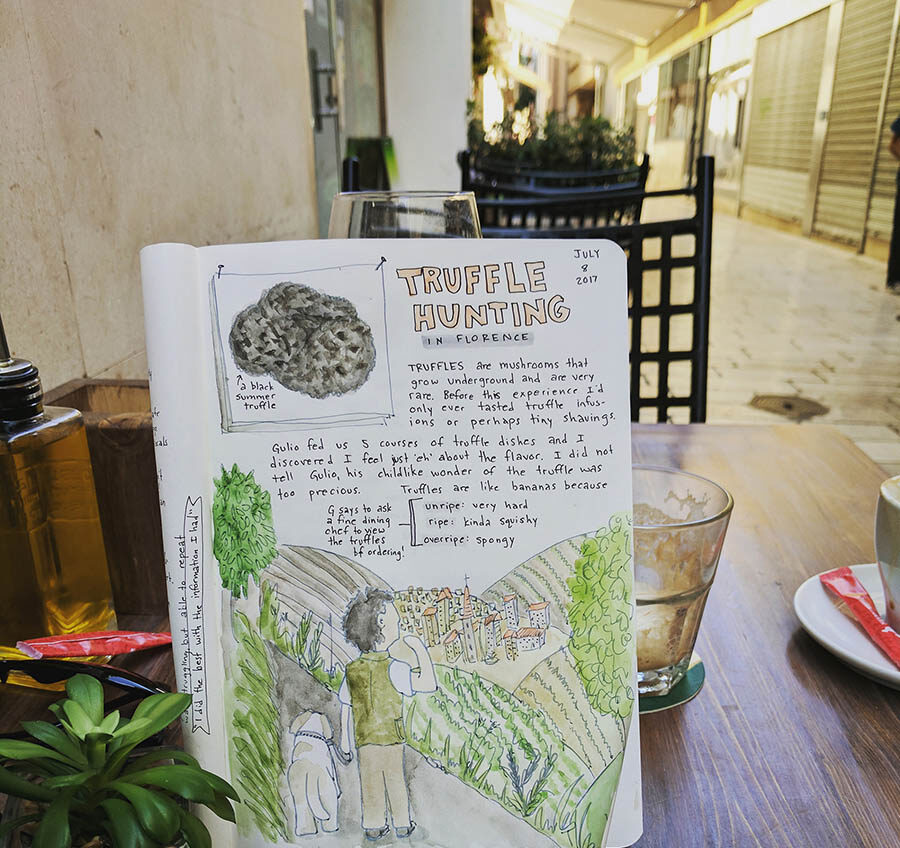 TRUFFLE
HUNTING
IN FLORENCE
JULY
8
2017
a black
summer
truffle
TRUFFLES are mushrooms that
grow underground and are very
rare. Before this experience I'd
only ever tasted truffle infus-
ions or perhaps tiny shavings.
Gulio fed us 5 courses of truffle dishes and I
discovered I feel just 'eh' about the flavor. I did not
tell Gulio, his childlike wonder of the truffle was
too precious. Truffles are like bananas because
G says to ask
a fine dining
chef to view
the truffles
bf ordering!
unripe: very hard
ripe: kinda squishy
overripe: spongy
struggling, but able to repeat
"I did the best with the information I had"